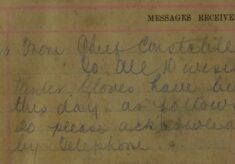 MESSAGES RECEIVE
From Chief Constable
To All Divisi
Gloves have be
this day as follows
so please acknowled
by Telephone